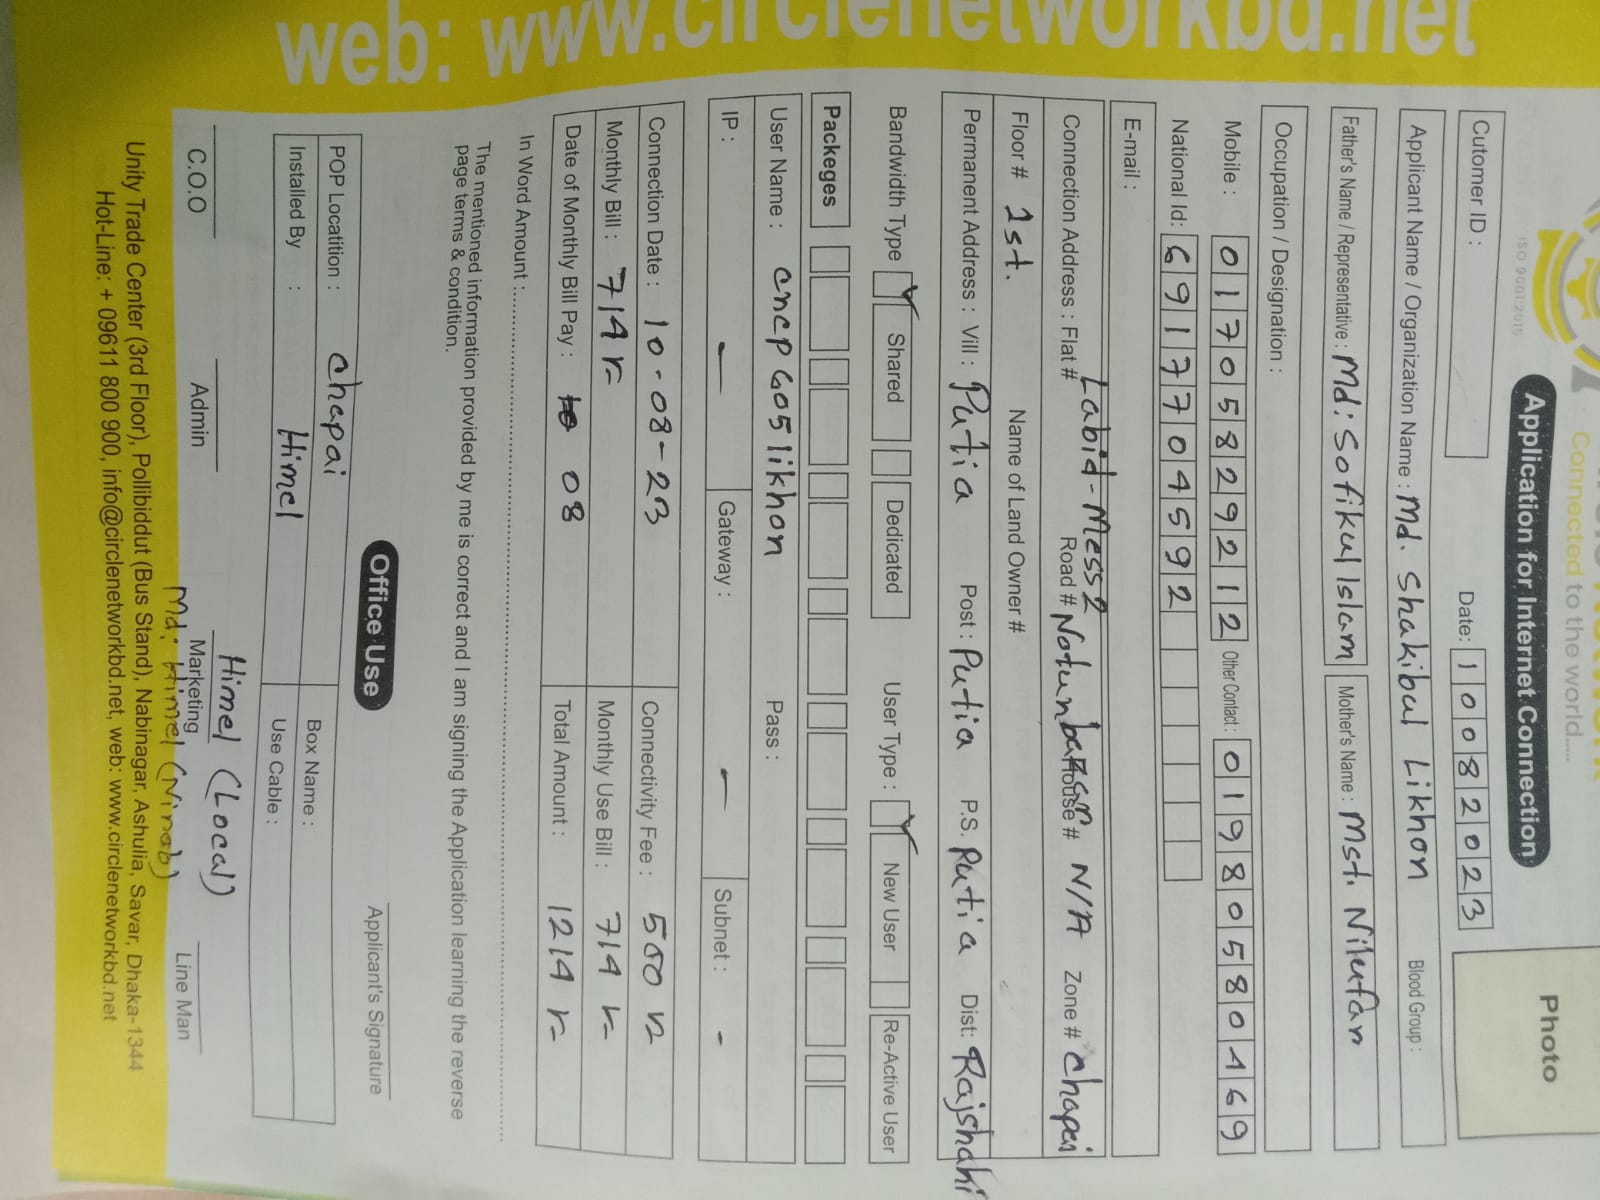 Connected to the world.....
ISO 9001:2015
Application for Internet Connection
Photo
Cutomer ID :
Date: 10082023
Applicant Name / Organization Name : Md. Shakibul Likhon
Blood Group :
Father's Name / Representative : Md: Sofikul Islam
Mother's Name : Mst. Nilufar
Occupation / Designation :
Mobile : 01705829212 Other Contact : 01980580469
National Id : 6917704592
E-mail :
Connection Address : Flat # Labid-Mess2 Road # Notunbazar House # N/A Zone # Chapai
Floor # 1st. Name of Land Owner #
Permanent Address : Vill : Putia Post : Putia P.S. Putia Dist: Rajshahi
Bandwidth Type Shared Dedicated User Type : New User Re-Active User
Packeges
User Name : cncp605likhon Pass :
IP : — Gateway : — Subnet : -
Connection Date : 10-08-23 Connectivity Fee : 500
Monthly Bill : 714 Monthly Use Bill : 714
Date of Monthly Bill Pay : 08 Total Amount : 1214
In Word Amount :
The mentioned information provided by me is correct and I am signing the Application learning the reverse
page terms & condition.
Applicant's Signature
Office Use
POP Locatition : Chapai Box Name :
Installed By : Himel Use Cable :
Himel (Local)
C.O.O Admin Marketing Line Man
Md: Himel
Unity Trade Center (3rd Floor), Pollibiddut (Bus Stand), Nabinagar, Ashulia, Savar, Dhaka-1344
Hot-Line: + 09611 800 900, info@circlenetworkbd.net, web: www.circlenetworkbd.net
web: www.circlenetworkbd.net